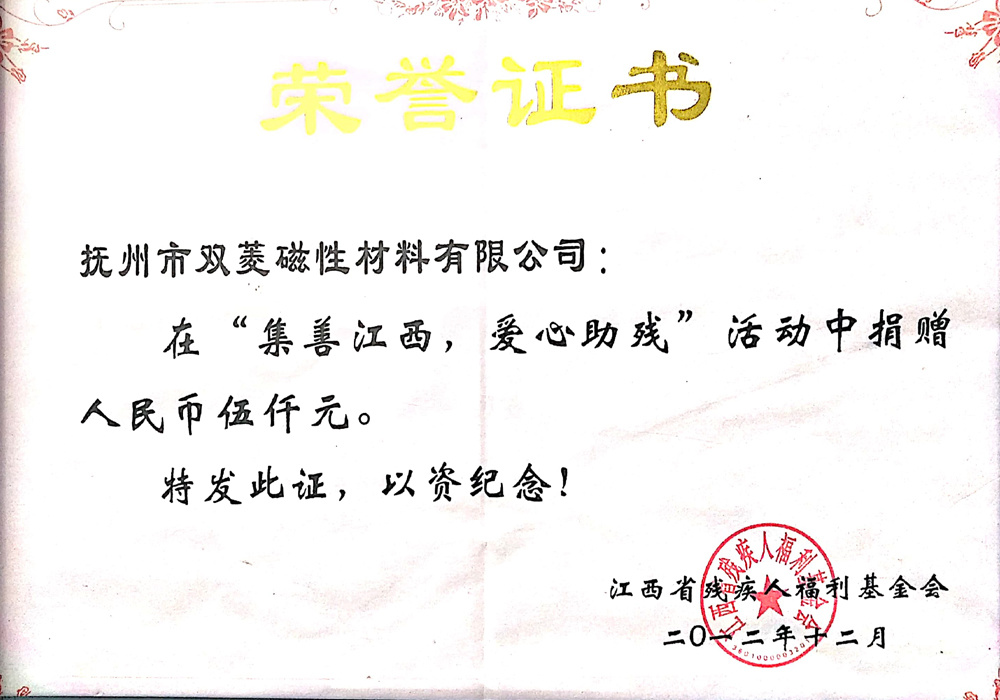 荣誉证书
抚州市双菱磁性材料有限公司：
在“集善江西，爱心助残”活动中捐赠
人民币伍仟元。
特发此证，以资纪念！
江西省残疾人福利基金会
江西省残疾人福利基金会
二〇一二年十二月